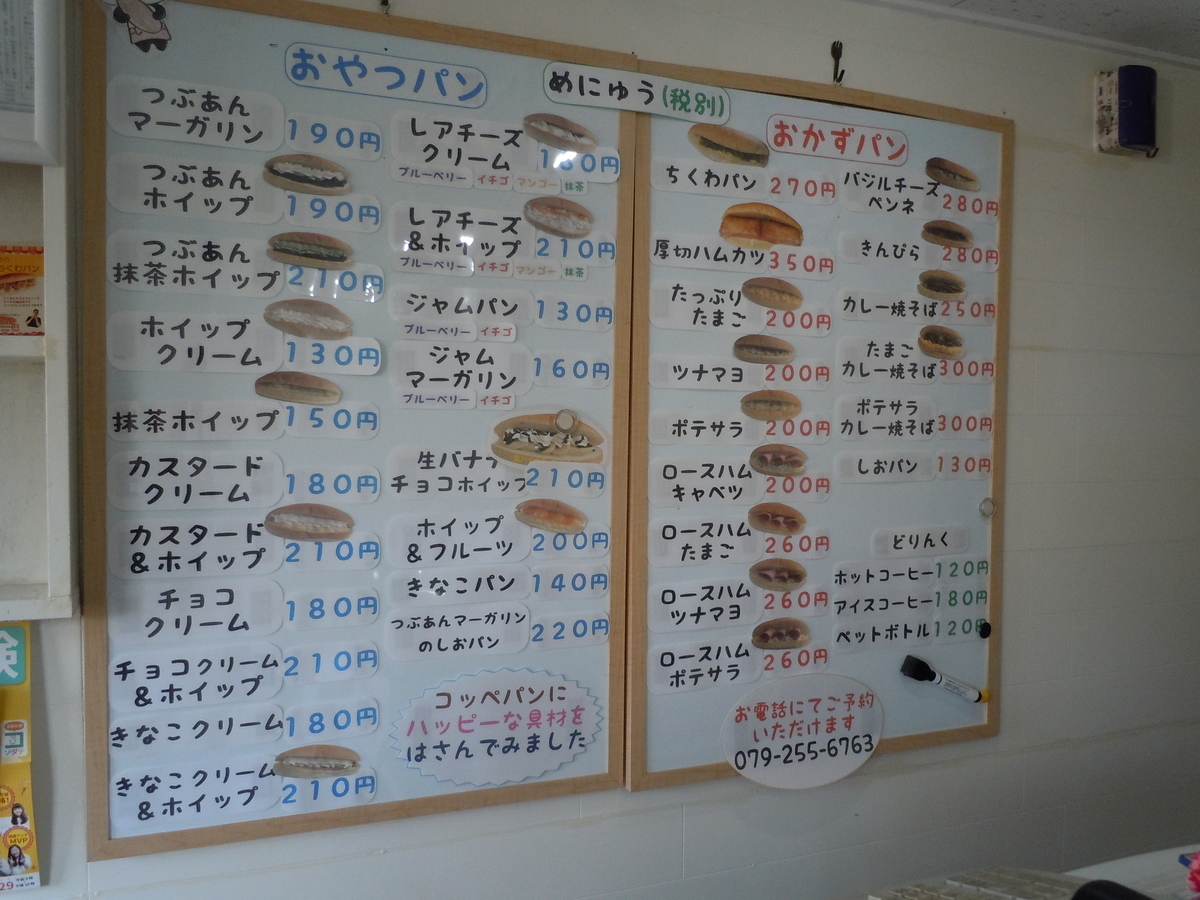 おやつパン
めにゅう(税別)
つぶあん
マーガリン 190円
つぶあん
ホイップ 190円
つぶあん
抹茶ホイップ 210円
ホイップ
クリーム 130円
抹茶ホイップ 150円
カスタード
クリーム 180円
カスタード
&ホイップ 210円
チョコ
クリーム 180円
チョコクリーム
&ホイップ 210円
きなこクリーム 180円
きなこクリーム
&ホイップ 210円
レアチーズ
クリーム 180円
ブルーベリー イチゴ マンゴー 抹茶
レアチーズ
&ホイップ 210円
ブルーベリー イチゴ マンゴー 抹茶
ジャムパン 130円
ブルーベリー イチゴ
ジャム
マーガリン 160円
ブルーベリー イチゴ
生バナナ
チョコホイップ 210円
ホイップ
&フルーツ 200円
きなこパン 140円
つぶあんマーガリン
のしおパン 220円
コッペパンに
ハッピーな具材を
はさんでみました
おかずパン
ちくわパン 270円
厚切ハムカツ 350円
たっぷり
たまご 200円
ツナマヨ 200円
ポテサラ 200円
ロースハム
キャベツ 200円
ロースハム
たまご 260円
ロースハム
ツナマヨ 260円
ロースハム
ポテサラ 260円
バジルチーズ
ペンネ 280円
きんぴら 280円
カレー焼そば 250円
たまご
カレー焼そば 300円
ポテサラ
カレー焼そば 300円
しおパン 130円
どりんく
ホットコーヒー 120円
アイスコーヒー 180円
ペットボトル 120円
お電話にてご予約
いただけます
079-255-6763
くわパン
験
MVP
29